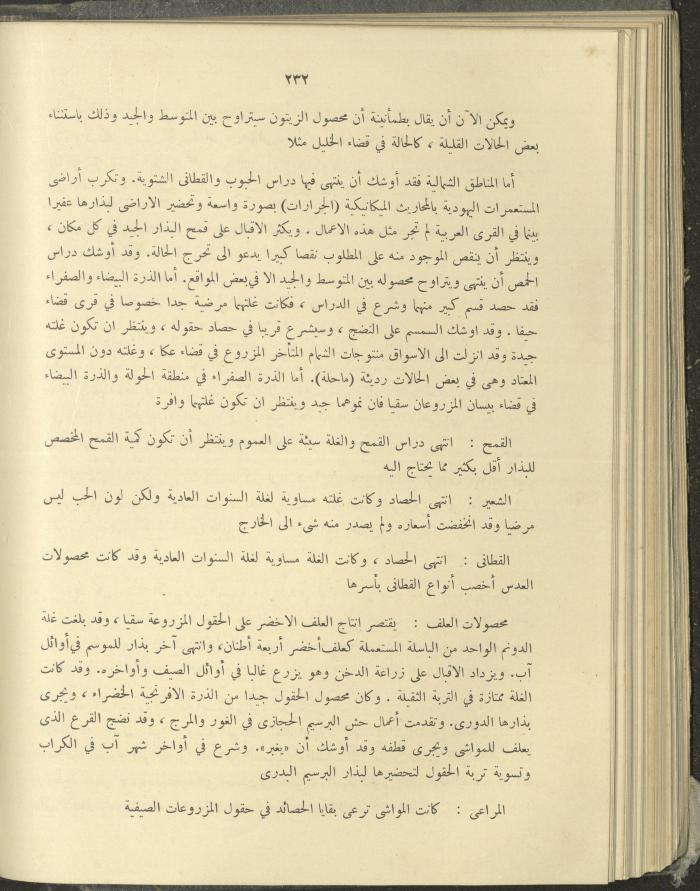 ٢٣٢
ويمكن الآن أن يقال بطمأنينة أن محصول الزيتون سيتراوح بين المتوسط والجيد وذلك باستثناء
بعض الحالات القليلة ، كالحالة في قضاء الخليل مثلا
أما المناطق الشمالية فقد أوشك أن ينتهى فيها دراس الحبوب والقطانى الشتوية. وتكرب أراضى
المستعمرات اليهودية بالمحاريث الميكانيكية (الجرارات) بصورة واسعة وتحضير الاراضى لبذارها عفيرا
بينما في القرى العربية لم تجر مثل هذه الاعمال . ويكثر الاقبال على قمح البذار الجيد في كل مكان ،
وينتظر أن ينقص الموجود منه على المطلوب نقصا كبيرا يدعو الى تحرج الحالة. وقد أوشك دراس
الحمص أن ينتهى ويتراوح محصوله بين المتوسط والجيد الا في بعض المواقع. أما الذرة البيضاء والصفراء
فقد حصد قسم كبير منهما وشرع في الدراس ، فكانت غلتهما مرضية جدا خصوصا في قرى قضاء
حيفا . وقد اوشك السمسم على النضج ، وسيشرع قريبا في حصاد حقوله ، وينتظر ان تكون غلته
جيدة وقد انزلت الى الاسواق منتوجات الشمام المتأخر المزروع في قضاء عكا ، وغلته دون المستوى
المعتاد وهى في بعض الحالات رديئة (ماحلة). أما الذرة الصفراء في منطقة الحولة والذرة البيضاء
في قضاء بيسان المزروعان سقيا فان نموهما جيد وينتظر ان تكون غلتهما وافرة
القمح : انتهى دراس القمح والغلة سيئة على العموم وينتظر أن تكون كمية القمح المخصص
للبذار أقل بكثير مما يحتاج اليه
الشعير : انتهى الحصاد وكانت غلته مساوية لغلة السنوات العادية ولكن لون الحب ليس
مرضيا وقد انخفضت أسعاره ولم يصدر منه شىء الى الخارج
القطانى : انتهى الحصاد ، وكانت الغلة مساوية لغلة السنوات العادية وقد كانت محصولات
العدس أخصب أنواع القطانى بأسرها
محصولات العلف : يقتصر انتاج العلف الاخضر على الحقول المزروعة سقيا ، وقد بلغت غلة
الدونم الواحد من الباسلة المستعملة كعلف أخضر أربعة أطنان، وانتهى آخر بذار للموسم في أوائل
آب. ويزداد الاقبال على زراعة الدخن وهو يزرع غالبا في أوائل الصيف وأواخره. وقد كانت
الغلة ممتازة في التربة الثقيلة . وكان محصول الحقول جيدا من الذرة الافرنجية الخضراء ، ويجرى
بذارها الدورى. وتقدمت أعمال حش البرسيم الحجازى في الغور والمرج ، وقد نضج القرع الذى
يعلف للمواشى ويجرى قطفه وقد أوشك أن «يغبر». وشرع في أواخر شهر آب في الكراب
وتسوية تربة الحقول لتحضيرها لبذار البرسيم البدرى
المراعى : كانت المواشى ترعى بقايا الحصائد في حقول المزروعات الصيفية